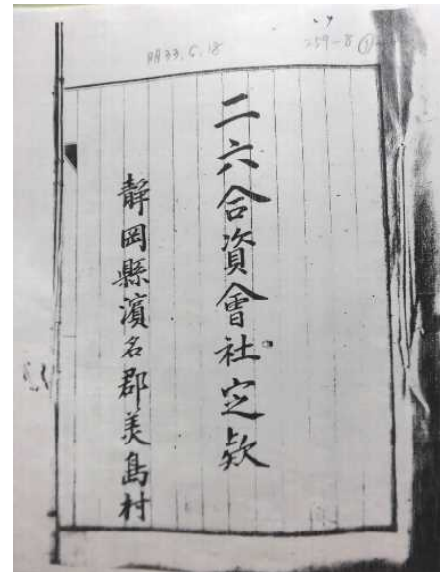 明33.6.18
259-8 ①
二六合資會社定款
静岡縣濱名郡美島村